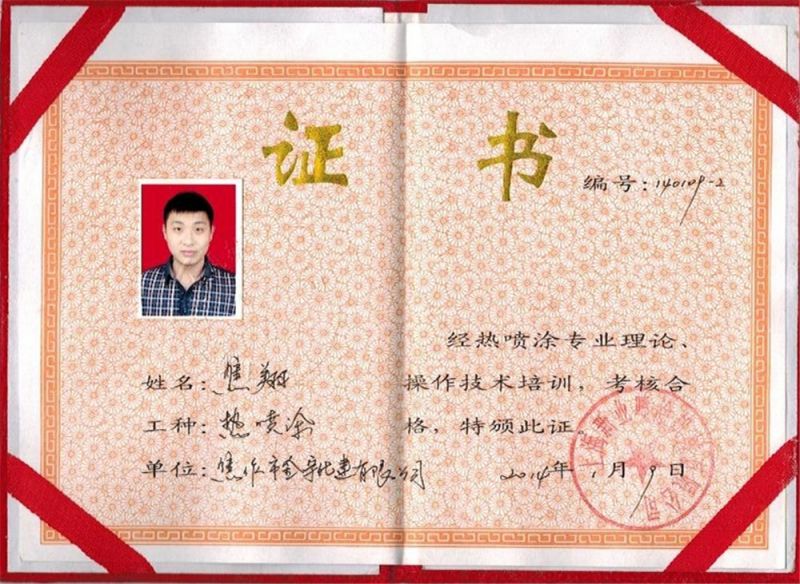 证 书
编号：140109-2
姓名：焦翔
工种：热喷涂
单位：焦作市金 建有限公司
经热喷涂专业理论、
操作技术培训，考核合
格，特颁此证。
2014年1月9日